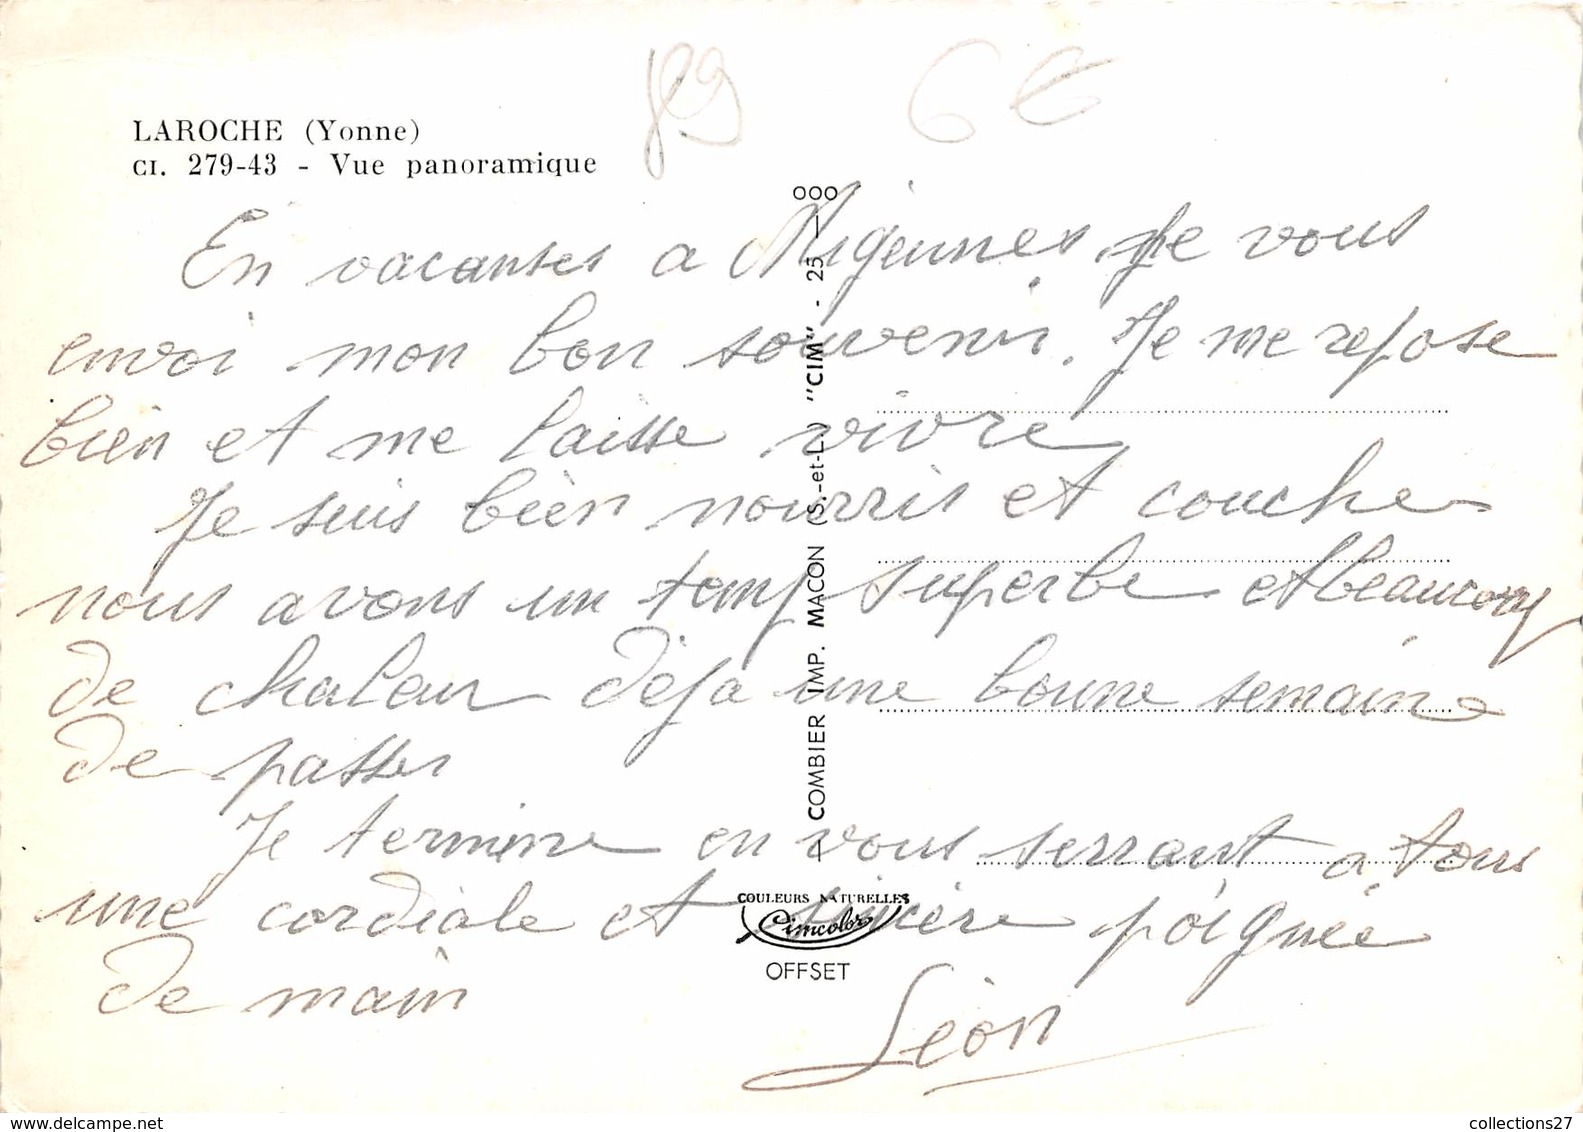 89 6€
LAROCHE (Yonne)
CI. 279-43 - Vue panoramique
En vacanses a Migennes je vous
envoi mon bon souvenir. Je me repose
bien et me laisse vivre
Je suis bien nourris et couche
nous avons un temp superbe et beaucoup
de chaleur déjà une bonne semaine
de passer
Je termine en vous serrant a tous
une cordiale et sincère poignée
de main
Léon
COMBIER IMP. MACON (S.-et-L.) "CIM" - 25 - 000
COULEURS NATURELLES
Cimcolor
OFFSET
www.delcampe.net
collections27